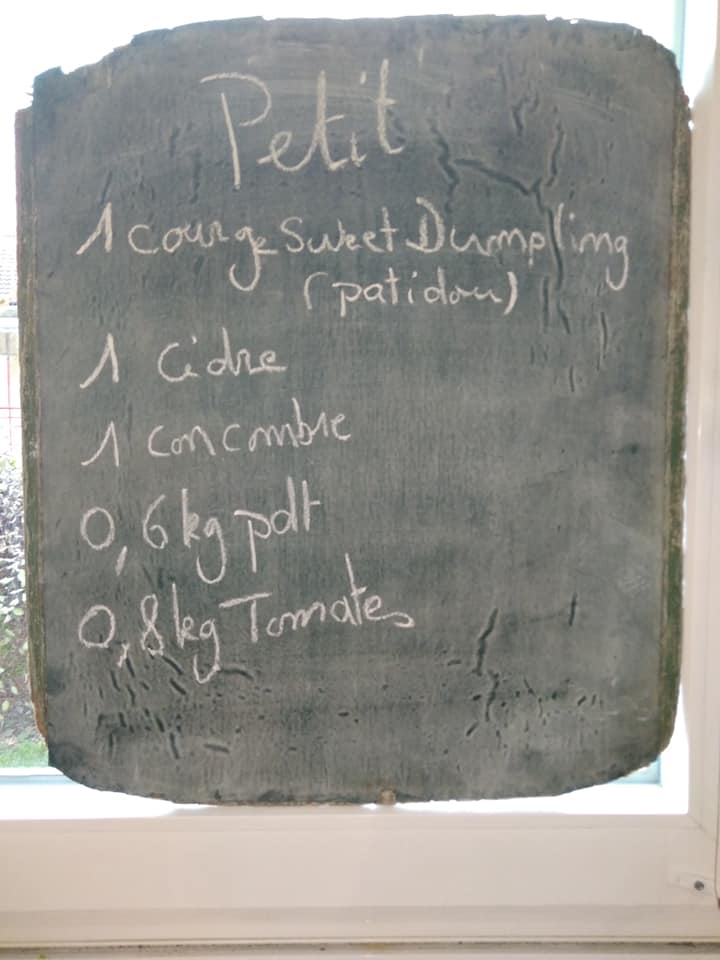 Petit
1 courge Sweet Dumpling
(patidou)
1 Cidre
1 concombre
0,6 kg pdt
0,8 kg Tomates